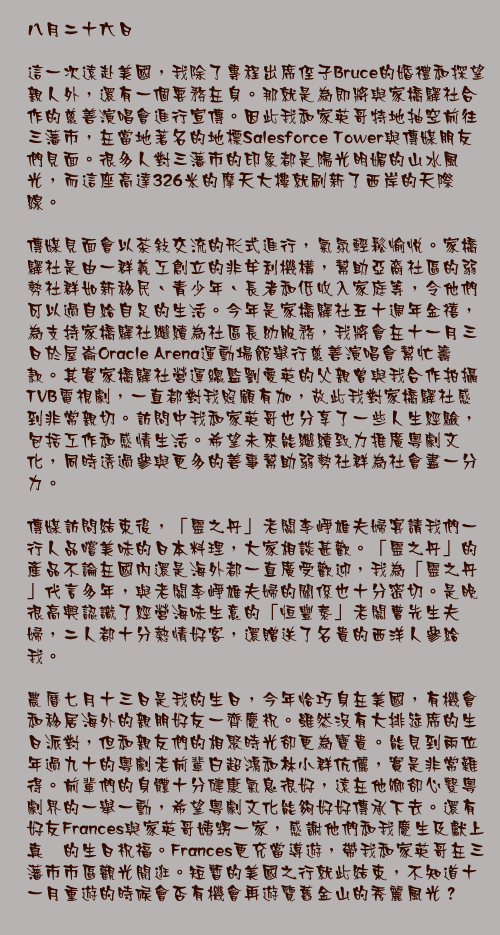 八月二十六日
這一次遠赴美國，我除了專程出席侄子Bruce的婚禮和探望
親人外，還有一個要務在身。那就是為即將與家橋驛社合
作的慈善演唱會進行宣傳。因此我和家英哥特地抽空前往
三藩市，在當地著名的地標Salesforce Tower與傳媒朋友
們見面。很多人對三藩市的印象都是陽光明媚的山水風
光，而這座高達326米的摩天大樓就刷新了西岸的天際
線。
傳媒見面會以茶敍交流的形式進行，氣氛輕鬆愉悅。家橋
驛社是由一群義工創立的非牟利機構，幫助亞裔社區的弱
勢社群如新移民、青少年、長者和低收入家庭等，令他們
可以過自給自足的生活。今年是家橋驛社五十週年金禧，
為支持家橋驛社繼續為社區長助服務，我將會在十一月三
日於屋崙Oracle Arena運動場館舉行慈善演唱會幫忙籌
款。其實家橋驛社營運總監劉愛英的父親曾與我合作拍攝
TVB電視劇，一直都對我照顧有加，故此我對家橋驛社感
到非常親切。訪問中我和家英哥也分享了一些人生經驗，
包括工作和感情生活。希望未來能繼續致力推廣粵劇文
化，同時透過參與更多的善事幫助弱勢社群為社會盡一分
力。
傳媒訪問結束後，「靈之丹」老闆李崢雄夫婦宴請我們一
行人品嚐美味的日本料理，大家相談甚歡。「靈之丹」的
產品不論在國內還是海外都一直廣受歡迎，我為「靈之丹
」代言多年，與老闆李崢雄夫婦的關係也十分密切。是晚
很高興認識了經營海味生意的「恒豐泰」老闆曹先生夫
婦，二人都十分熱情好客，還贈送了名貴的西洋人參給
我。
農曆七月十三日是我的生日，今年恰巧身在美國，有機會
和移居海外的親朋好友一齊慶祝。雖然沒有大排筵席的生
日派對，但和親友們的相聚時光卻更為寶貴。能見到兩位
年過九十的粵劇老前輩白超鴻和林小群伉儷，實是非常難
得。前輩們的身體十分健康氣息很好，遠在他鄉卻心繫粵
劇界的一舉一動，希望粵劇文化能夠好好傳承下去。還有
好友Frances與家英哥姨甥一家，感謝他們和我慶生及獻上
真　的生日祝福。Frances更充當導遊，帶我和家英哥在三
藩市市區觀光閒逛。短暫的美國之行就此結束，不知道十
一月重遊的時候會否有機會再遊覽舊金山的秀麗風光？